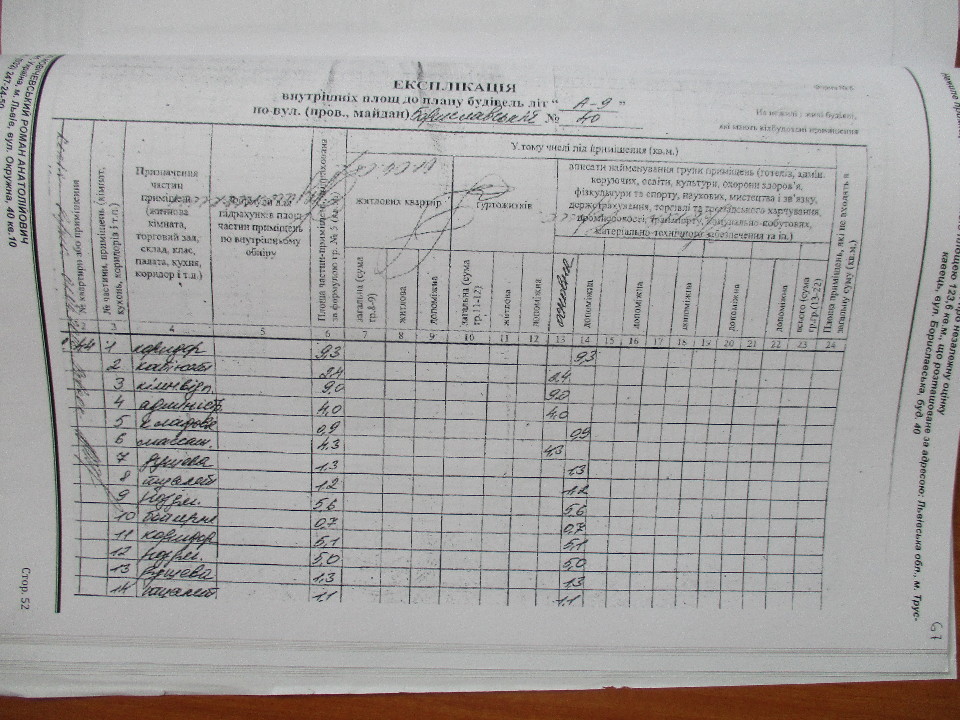 ЕКСПЛІКАЦІЯ
внутрішніх площ до плану будівель літ “ А-9 ”
по вул. (пров., майдан) Бориславській № 40
На нежилі і жилі будівлі,
які мають вбудовані приміщення
№ квартири або приміщення
№ частини, приміщень (кімнат, кухонь, коридорів і т.п.)
Призначення
частин
приміщень
(житлова
кімната,
торговий зал,
склад, клас,
палата, кухня,
коридор і т.д.)
підрахунків площ
частин приміщень
по внутрішньому
обміру
за формулою гр. № 5 (кв.м.)
У тому числі під приміщення (кв.м.)
житлових квартир
гуртожитків
вписати найменування групи приміщень (готелів, адмін.
керуючих, освіти, культури, охорони здоров'я,
фізкультури та спорту, наукових, мистецтва і зв'язку,
держстрахування, торгівлі та громадського харчування,
промисловості, транспорту, комунально-побутових,
матеріально-технічного забезпечення та ін.)
Площа приміщень, які не входять в загальну суму (кв.м.)
загальна (сума гр.-9)
житлова
допоміжна
загальна (сума гр.11-12)
житлова
допоміжна
основна
допоміжна
допоміжна
допоміжна
допоміжна
допоміжна
всього (сума гр.гр.(13-22)
2 3 4 5 6 7 8 9 10 11 12 13 14 15 16 17 18 19 20 21 22 23 24
44 1 коридор 9,3 9,3
2 кабінет 2,4 2,4
3 9,0 9,0
4 адміністр. 4,0 4,0
5 кладова 0,9 0,9
6 массаж. 4,3 4,3
7 душева 1,3 1,3
8 туалет 1,2 1,2
9 роздяг. 5,6 5,6
10 бойлерна 0,7 0,7
11 коридор 5,1 5,1
12 роздяг. 5,0 5,0
13 душева 1,3 1,3
14 туалет 1,1 1,1
ЧЕВСЬКИЙ РОМАН АНАТОЛІЙОВИЧ
Україна, м. Львів, вул. Окружна, 40 кв.10
247-24-50
Стор. 52
про незалежну оцінку
площею 123,6 кв.м., що розташоване за адресою: Львівська обл., м. Трус-
кавець, вул. Бориславська, буд. 40
67